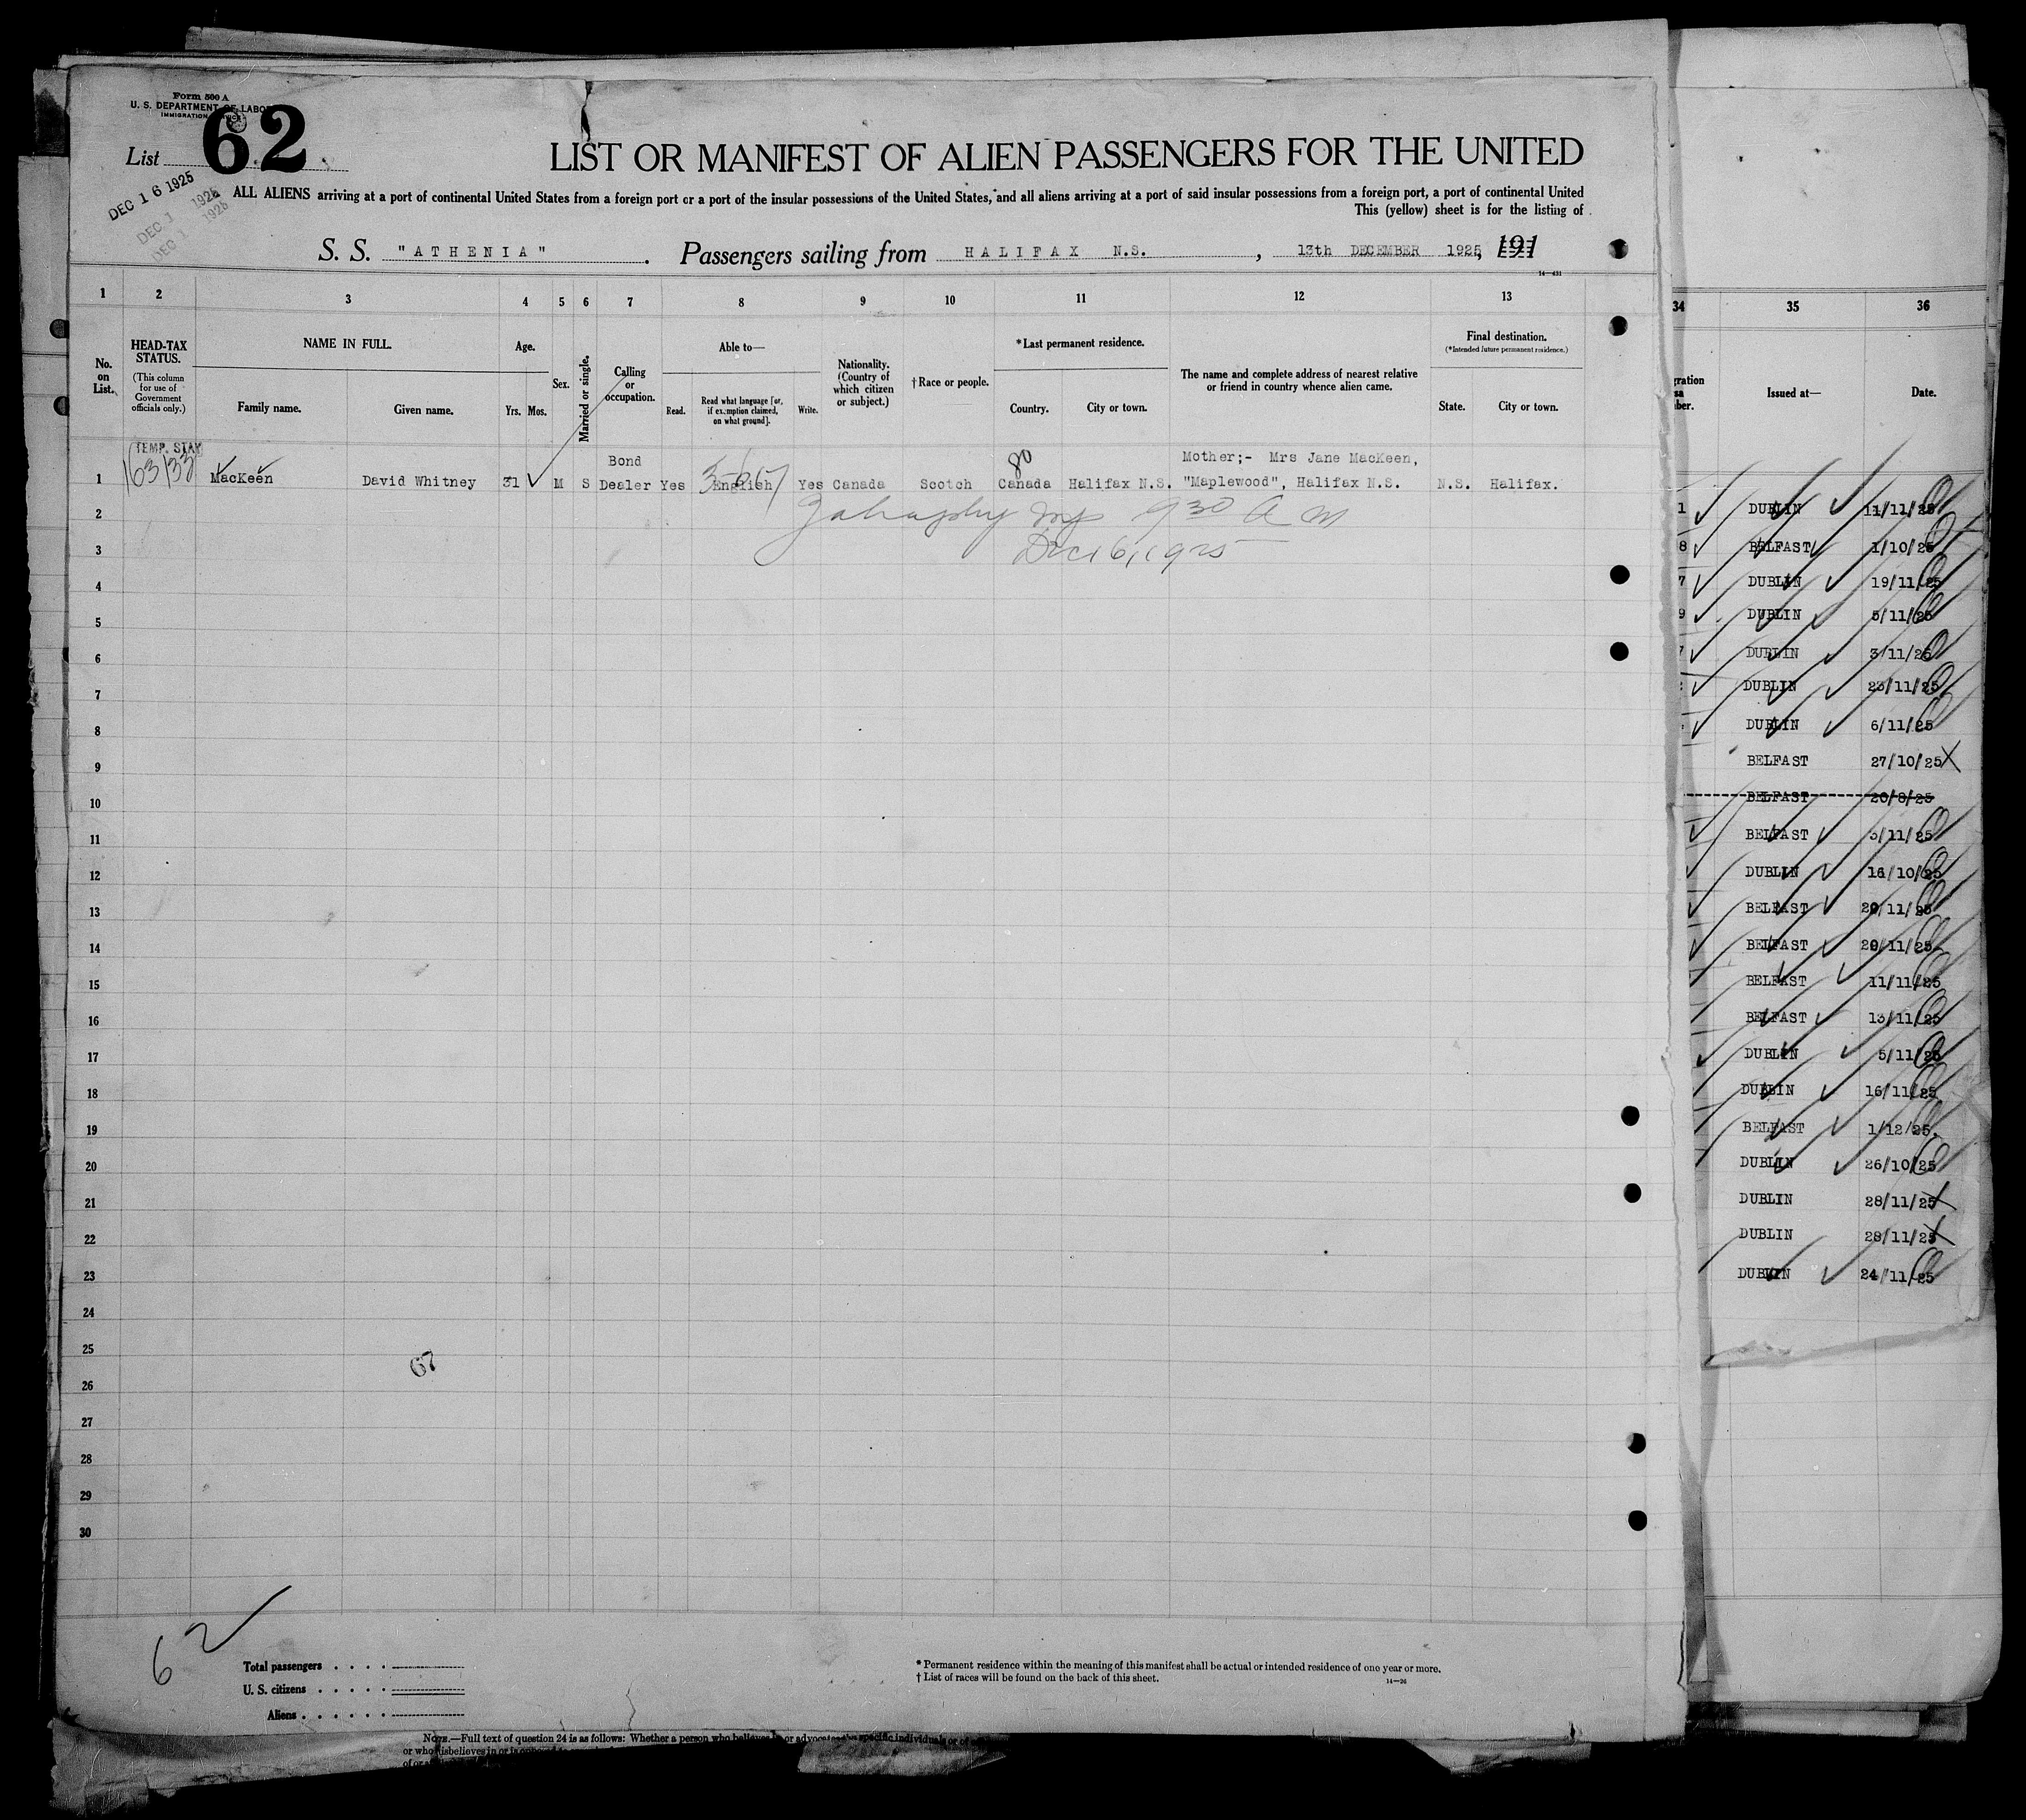 Form 500 A
U. S. DEPARTMENT OF LABOR
IMMIGRATION SERVICE
List 62
DEC 16 1925
DEC 1 1925
DEC 1 1925
LIST OR MANIFEST OF ALIEN PASSENGERS FOR THE UNITED
ALL ALIENS arriving at a port of continental United States from a foreign port or a port of the insular possessions of the United States, and all aliens arriving at a port of said insular possessions from a foreign port, a port of continental United
This (yellow) sheet is for the listing of
S. S. "ATHENIA". Passengers sailing from HALIFAX N.S., 13th DECEMBER 1925, 191
14—431
1 2 3 4 5 6 7 8 9 10 11 12 13
No. on List.
HEAD-TAX STATUS.
(This column for use of Government officials only.)
NAME IN FULL.
Family name. Given name.
Age.
Yrs. Mos.
Sex.
Married or single.
Calling or occupation.
Able to—
Read. Read what language [or, if exemption claimed, on what ground]. Write.
Nationality. (Country of which citizen or subject.)
†Race or people.
*Last permanent residence.
Country. City or town.
The name and complete address of nearest relative or friend in country whence alien came.
Final destination.
(*Intended future permanent residence.)
State. City or town.
TEMP. STAY
80
Bond Mother;- Mrs Jane MacKeen,
1 MacKeen David Whitney 31 M S Dealer Yes English Yes Canada Scotch Canada Halifax N.S. "Maplewood", Halifax N.S. N.S. Halifax.
2 930 A M
3 Dec 16, 1925
4
5
6
7
8
9
10
11
12
13
14
15
16
17
18
19
20
21
22
23
24
25
67
26
27
28
29
30
62
Total passengers
U. S. citizens
Aliens
* Permanent residence within the meaning of this manifest shall be actual or intended residence of one year or more.
† List of races will be found on the back of this sheet.
14—26
NOTE.—Full text of question 24 is as follows: Whether a person who believes in or advocates
34 35 36
Issued at— Date.
1 DUBLIN 11/11/25
8 BELFAST 1/10/25
7 DUBLIN 19/11/25
9 DUBLIN 5/11/25
7 DUBLIN 3/11/25
DUBLIN 23/11/25
DUBLIN 6/11/25
BELFAST 27/10/25
BELFAST 20/8/25
BELFAST 3/11/25
DUBLIN 16/10/25
BELFAST 20/11/25
BELFAST 20/11/25
BELFAST 11/11/25
BELFAST 13/11/25
DUBLIN 5/11/25
DUBLIN 16/11/25
BELFAST 1/12/25.
DUBLIN 26/10/25
DUBLIN 28/11/25
DUBLIN 28/11/25
DUBLIN 24/11/25